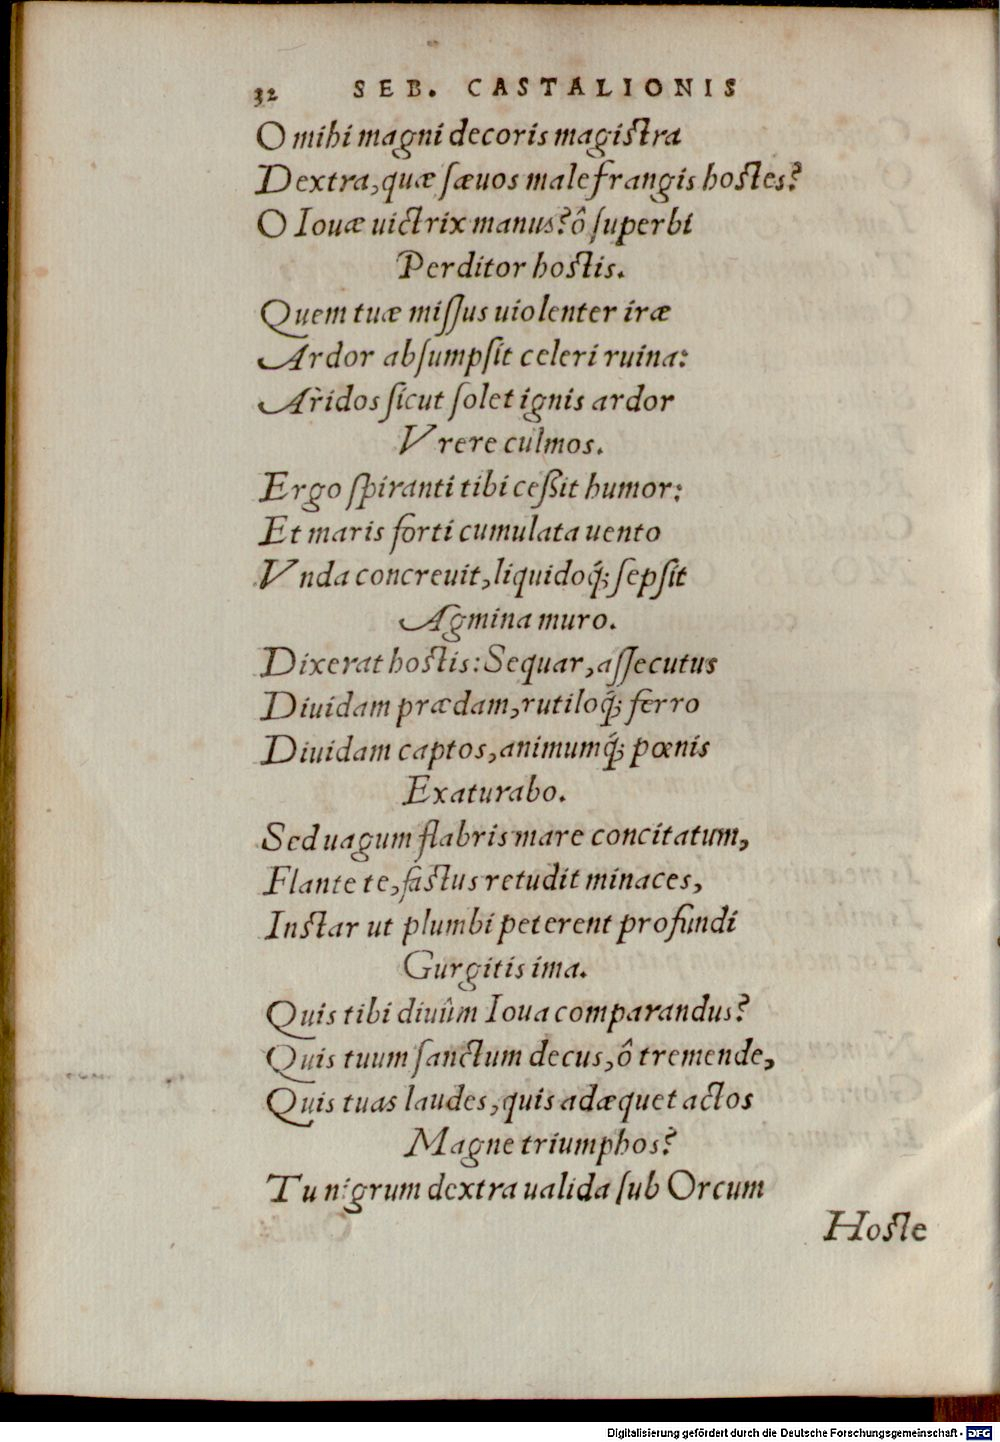 32 SEB. CASTALIONIS
O mihi magni decoris magiſtra
Dextra, quæ ſæuos male frangis hoſtes?
O Iouæ uictrix manus? ô ſuperbi
Perditor hoſtis.
Quem tuæ miſſus uiolenter iræ
Ardor abſumpſit celeri ruina:
Aridos ſicut ſolet ignis ardor
Vrere culmos.
Ergo ſpiranti tibi ceßit humor:
Et maris forti cumulata uento
Vnda concreuit, liquidoq́; ſepſit
Agmina muro.
Dixerat hoſtis: Sequar, aſſecutus
Diuidam prædam, rutiloq́; ferro
Diuidam captos, animumq́; pœnis
Exaturabo.
Sed uagum flabris mare concitatum,
Flante te, faſtus retudit minaces,
Inſtar ut plumbi peterent profundi
Gurgitis ima.
Quis tibi diuûm Ioua comparandus?
Quis tuum ſanctum decus, ô tremende,
Quis tuas laudes, quis adæquet actos
Magne triumphos?
Tu nigrum dextra ualida ſub Orcum
Hoſte
Digitalisierung gefördert durch die Deutsche Forschungsgemeinschaft - DFG